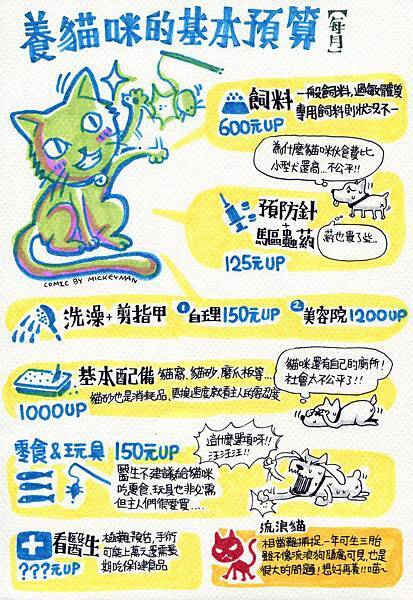 養貓咪的基本預算【每月】
COMIC BY MICKEYMAN
飼料
一般飼料，過敏體質
專用飼料則狀況不一
600元UP
為什麼貓咪伙食費比
小型犬還高…不公平!!
預防針
+
驅蟲藥
125元UP
藥也貴了些..
洗澡+剪指甲
①自理150元UP
②美容院1200UP
基本配備
貓窩、貓砂、磨爪板等…
貓砂也是消耗品、更換速度就看主人的
1000UP
貓咪還有自己的廁所!
社會太不公平了!!
零食&玩具 150元UP
醫生不建議給貓咪
吃零食、玩具也非必需
但主人們很愛買....
這什麼單項呀!!
汪汪汪!!
看醫生
極難預估，手術
可能上萬還需長
期吃保健食品
???元UP
流浪貓
相當難捕捉，一年可生三胎
雖不像流浪狗隨處可見，也是
很大的問題!想好再養!!喵~